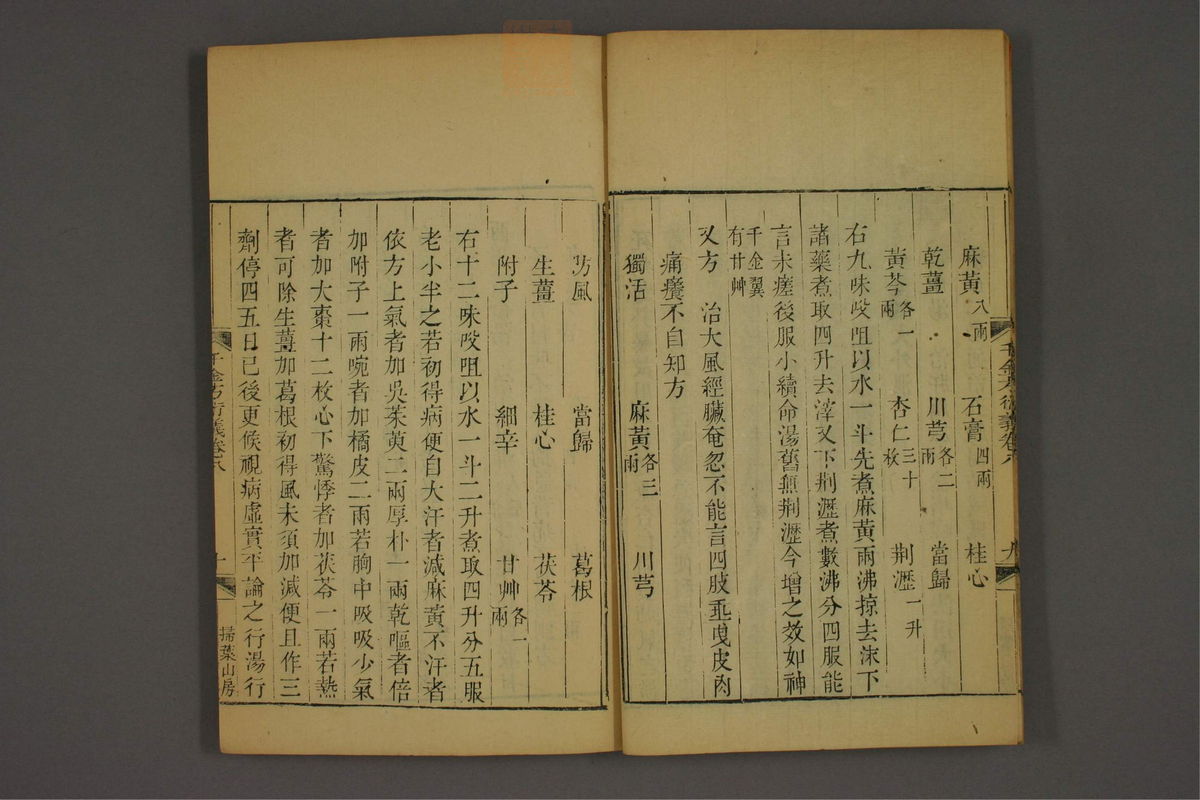 麻黃八兩 石膏四兩 桂心
乾薑 川芎各二兩 當歸
黃芩各一兩 杏仁三十枚 荆瀝一升
右九味㕮咀以水一斗先煮麻黃兩沸掠去沫下
諸藥煮取四升去滓又下荆瀝煮數沸分四服能
言未瘥後服小續命湯舊無荆瀝今增之效如神
千金翼有甘艸
又方 治大風經臟奄忽不能言四肢垂曳皮肉
痛癢不自知方
獨活 麻黃各三兩 川芎
防風 當歸 葛根
生薑 桂心 茯苓
附子 細辛 甘艸各一兩
右十二味㕮咀以水一斗二升煮取四升分五服
老小半之若初得病便自大汗者減麻黃不汗者
依方上氣者加吳茱萸二兩厚朴一兩乾嘔者倍
加附子一兩啘者加橘皮二兩若胸中吸吸少氣
者加大棗十二枚心下驚悸者加茯苓一兩若熱
者可除生薑加葛根初得風未須加減便且作三
劑停四五日已後更候視病虛實平論之行湯行
千金方衍義卷八
掃葉山房